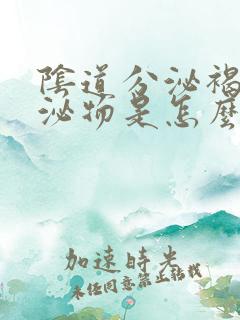 陰道分泌褐
泌物是怎麼
加速時光
未經同意禁止轉載